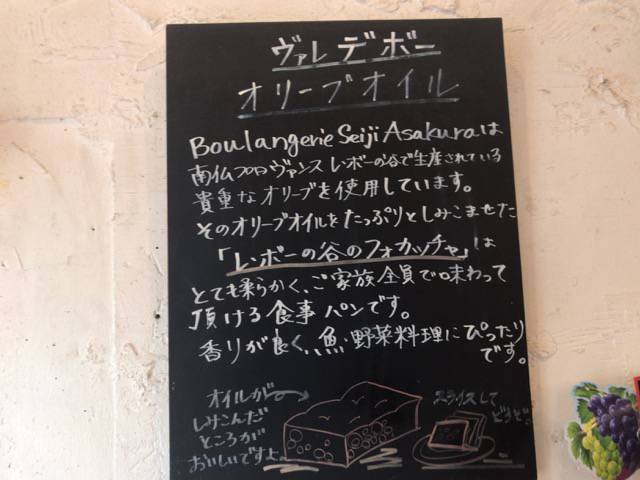 ヴァレデボー
オリーブオイル
Boulangerie Seiji Asakuraは
南仏プロヴァンス レ・ボーの谷で生産されている
貴重なオリーブを使用しています。
そのオリーブオイルをたっぷりとしみこませた
「レ・ボーの谷のフォカッチャ」は
とても柔らかく、ご家族全員で味わって
頂ける食事パンです。
香りが良く、魚・野菜料理にぴったり
です。
オイルが
しみこんだ
ところが
おいしいですよ。
スライスして
どうぞ。